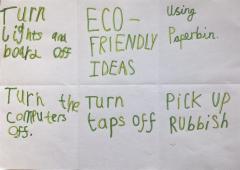 Turn
lights and
board off
ECO-
FRIENDLY
IDEAS
Using
Paperbin.
Turn the
computers
off.
Turn
taps off
Pick up
Rubbish